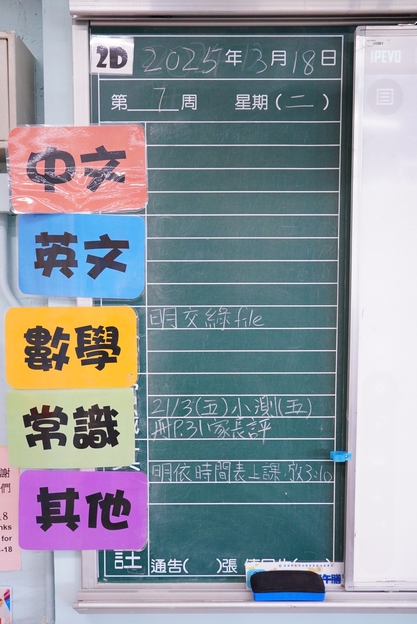 2D 2025年3月18日
IPEVO
第7周 星期(二)
中文
英文
明交綠file
數學
21/3(五)小測(五)
常識
冊P.31家長評
明依時間表上課
其他
註 通告( )張
謝
們
18
nks
for
-18